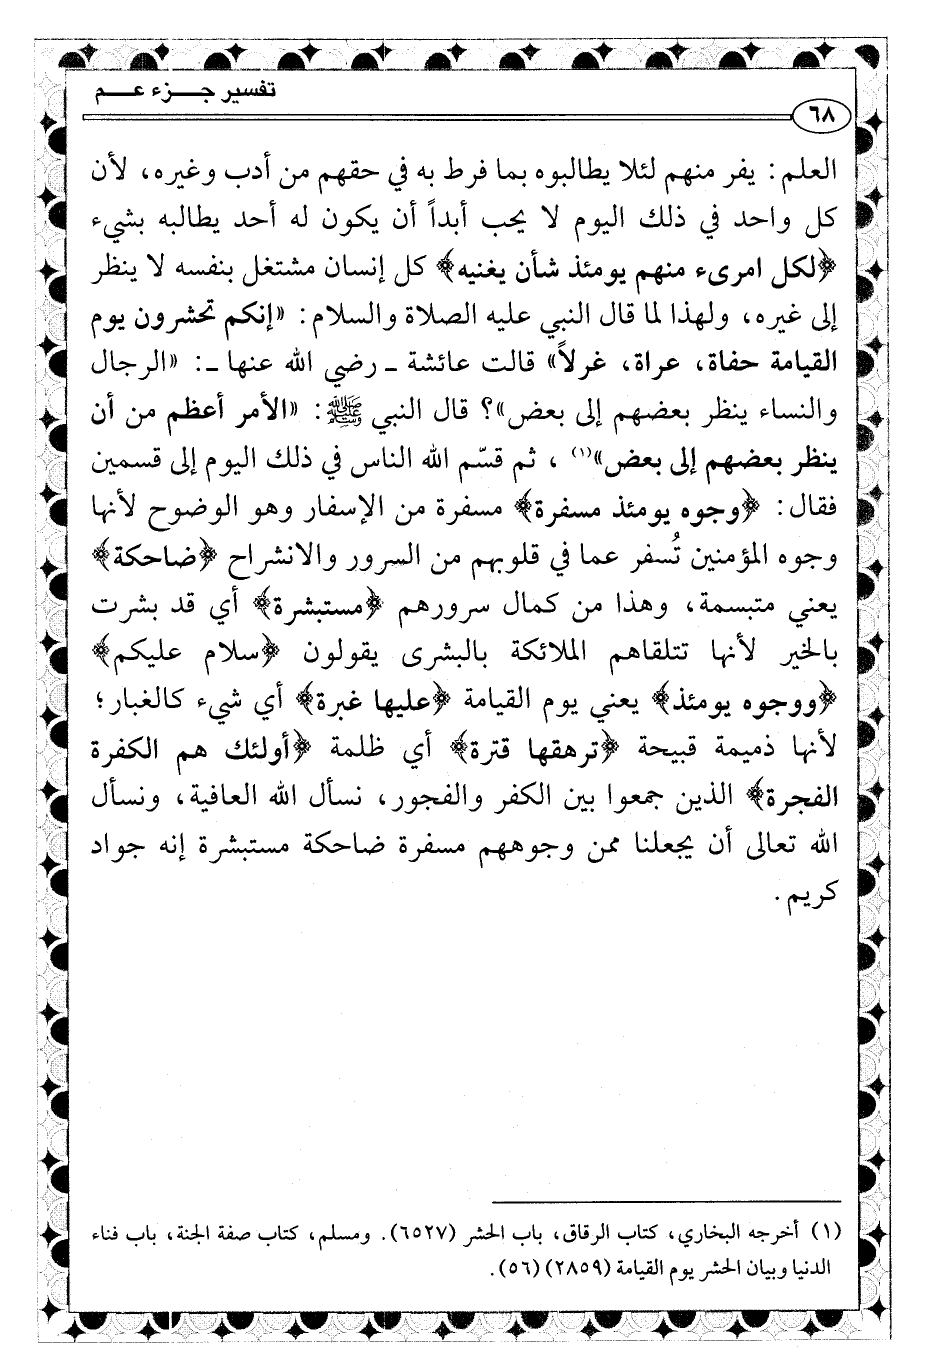 تفسير جـــزء عـــم
٦٨
العلم: يفر منهم لئلا يطالبوه بما فرط به في حقهم من أدب وغيره، لأن
كل واحد في ذلك اليوم لا يحب أبداً أن يكون له أحد يطالبه بشيء
﴿لكل امرىء منهم يومئذ شأن يغنيه﴾ كل إنسان مشتغل بنفسه لا ينظر
إلى غيره، ولهذا لما قال النبي عليه الصلاة والسلام: «إنكم تحشرون يوم
القيامة حفاة، عراة، غرلاً» قالت عائشة ـ رضي الله عنها ـ: «الرجال
والنساء ينظر بعضهم إلى بعض»؟ قال النبي ﷺ: «الأمر أعظم من أن
ينظر بعضهم إلى بعض»(١) ، ثم قسّم الله الناس في ذلك اليوم إلى قسمين
فقال: ﴿وجوه يومئذ مسفرة﴾ مسفرة من الإسفار وهو الوضوح لأنها
وجوه المؤمنين تُسفر عما في قلوبهم من السرور والانشراح ﴿ضاحكة﴾
يعني متبسمة، وهذا من كمال سرورهم ﴿مستبشرة﴾ أي قد بشرت
بالخير لأنها تتلقاهم الملائكة بالبشرى يقولون ﴿سلام عليكم﴾
﴿ووجوه يومئذ﴾ يعني يوم القيامة ﴿عليها غبرة﴾ أي شيء كالغبار؛
لأنها ذميمة قبيحة ﴿ترهقها قترة﴾ أي ظلمة ﴿أولئك هم الكفرة
الفجرة﴾ الذين جمعوا بين الكفر والفجور، نسأل الله العافية، ونسأل
الله تعالى أن يجعلنا ممن وجوههم مسفرة ضاحكة مستبشرة إنه جواد
كريم.
(١) أخرجه البخاري، كتاب الرقاق، باب الحشر (٦٥٢٧). ومسلم، كتاب صفة الجنة، باب فناء
الدنيا وبيان الحشر يوم القيامة (٢٨٥٩) (٥٦).